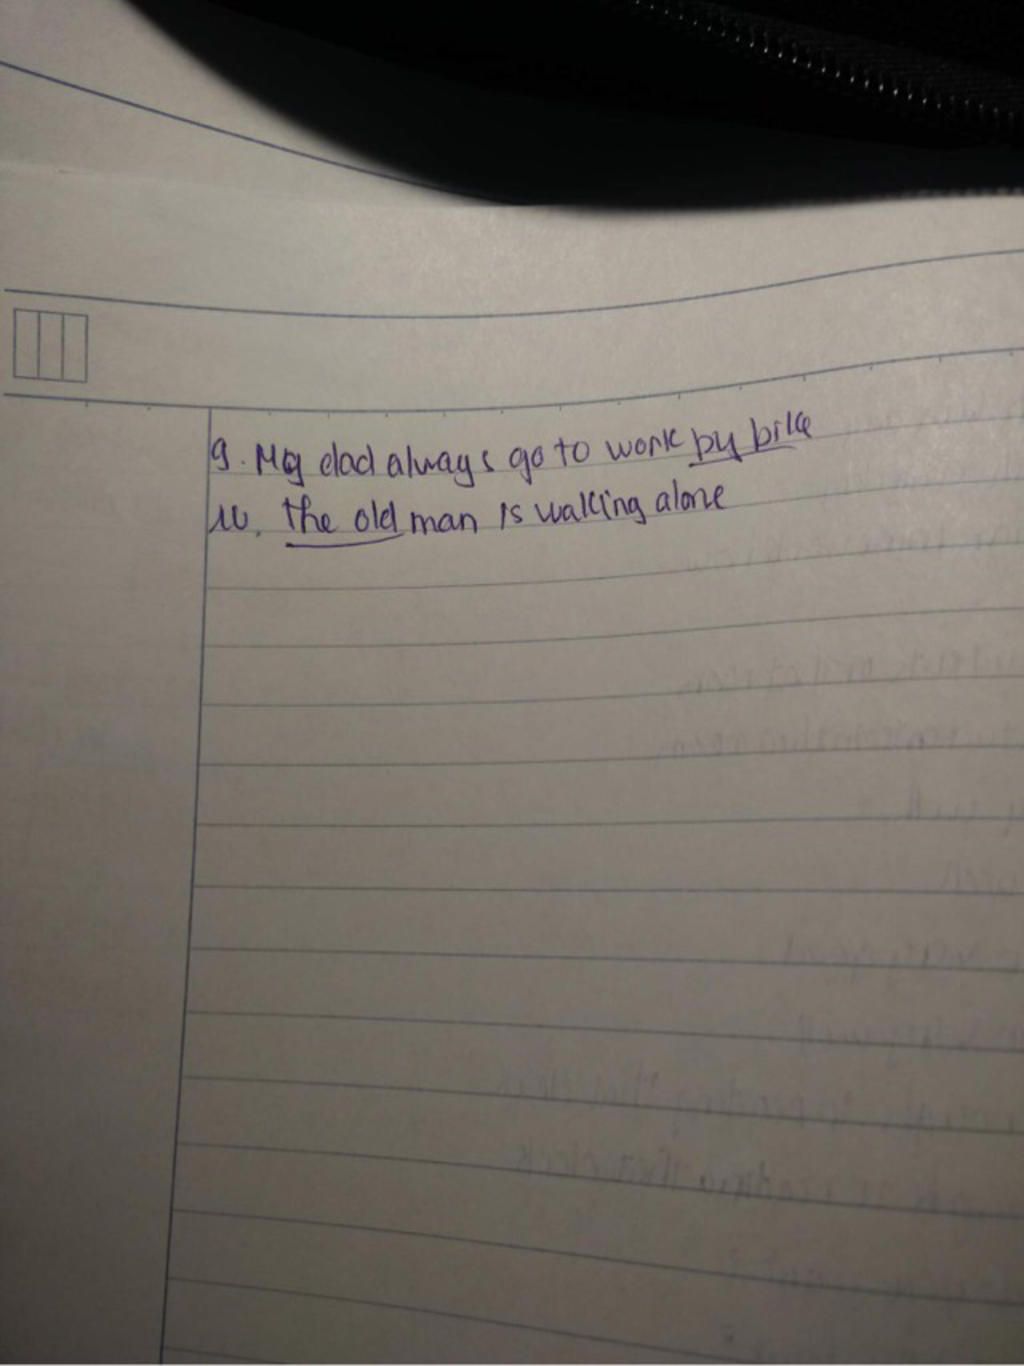 9. My dad always go to work by bike
10. the old man is walking alone